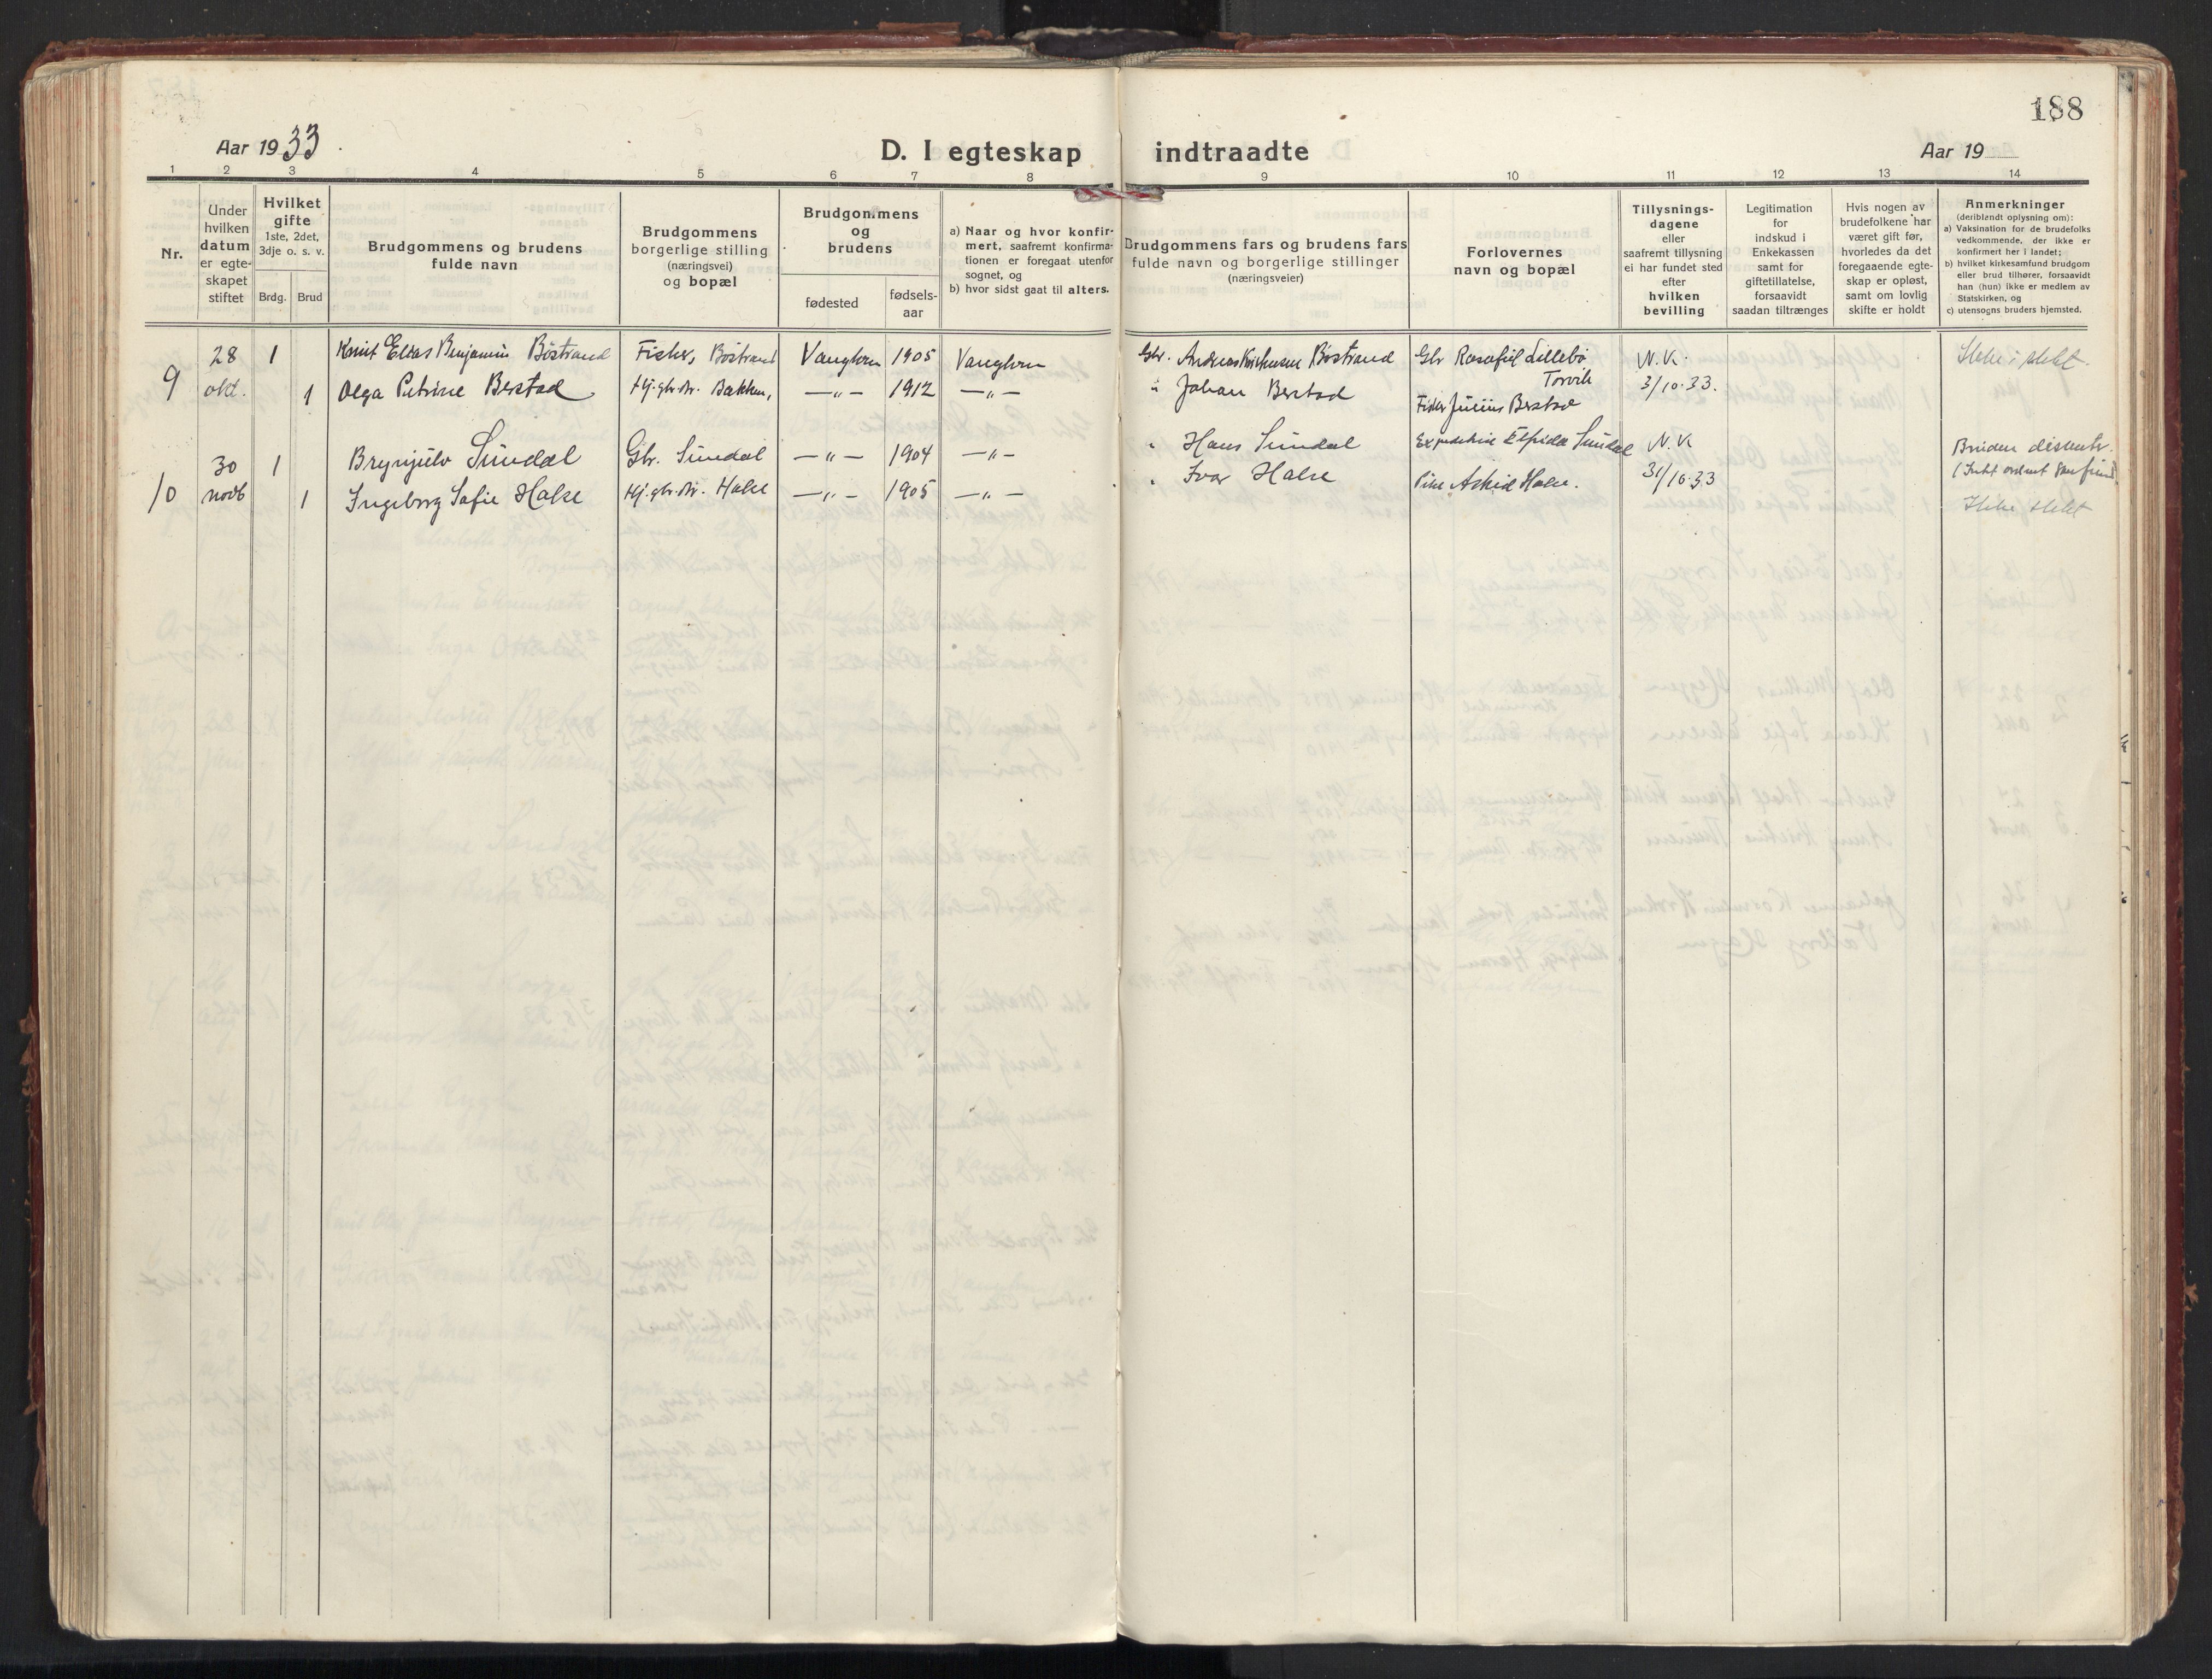 188
Aar 1933.
D. I egteskap indtraadte
Aar 19
1 2 3 4 5 6 7 8 9 10 11 12 13 14
Nr.
Under
hvilken
datum
er egte-
skapet
stiftet
Hvilket
gifte
1ste, 2det,
3dje o. s. v.
Brdg. Brud
Brudgommens og brudens
fulde navn
Brudgommens
borgerlige stilling
(næringsvei)
og bopæl
Brudgommens
og
brudens
fødested
fødsels-
aar
a) Naar og hvor konfir-
mert, saafremt konfirma-
tionen er foregaat utenfor
sognet, og
b) hvor sidst gaat til alters.
Brudgommens fars og brudens fars
fulde navn og borgerlige stillinger
(næringsveier)
Forlovernes
navn og bopæl
Tillysnings-
dagene
eller
saafremt tillysning
ei har fundet sted
efter
hvilken
bevilling
Legitimation
for
indskud i
Enkekassen
samt for
giftetillatelse,
forsaavidt
saadan tiltrænges
Hvis nogen av
brudefolkene har
været gift før,
hvorledes da det
foregaaende egte-
skap er opløst,
samt om lovlig
skifte er holdt
Anmerkninger
(deriblandt oplysning om):
a) Vaksination for de brudefolks
vedkommende, der ikke er
konfirmert her i landet;
b) hvilket kirkesamfund brudgom
eller brud tilhører, forsaavidt
han (hun) ikke er medlem av
Statskirken, og
c) utensogns bruders hjemsted.
9
28 1 Knut Elias Benjamin Böstrand Fisker, Böstrand Vanylven 1905 Vanylven Gbr. Andreas Kristiansen Böstrand Gbr Rasafil Lillebö N.K. Ikke i slekt.
okt. 1 Olga Petrine Berstad Hj. gbr. dtr. Bakken, —"— 1912 —"— " Johan Berstad Torvik 3/10.33.
Fisker Julius Berstad
10
30 1 Brynjulv Sundal Gbr. Sundal —"— 1904 —"— " Hans Sundal Expeditrise Elfrida Sundal N.K Bruden dissenter.
novb 1 Ingeborg Sofie Halse Hj. gbr. dtr. Halse —"— 1905 —"— " Ivar Halse Pike Astrid Halse. 31/10.33
Ikke slekt